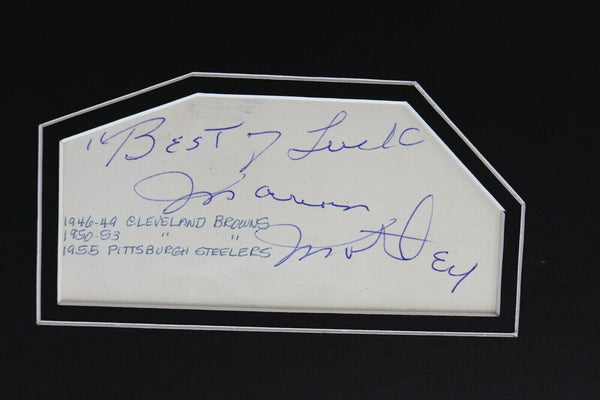 "BEST of Luck
Marion
Motley
1946-49 CLEVELAND BROWNS
1950-53 " "
1955 PITTSBURGH STEELERS